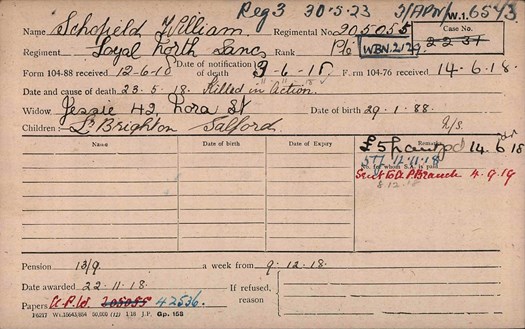 Reg 3 30-5-23 3/APW/W.1.6543
Name Schofield William. Regimental No. 205055 Case No.
Regiment Loyal North Lancs Rank Pte WBN.2/29 22 37
Form 104-88 received 12-6-18 Date of notification of death 9-6-18 Form 104-76 received 14.6.18.
Date and cause of death 23.5.18. Killed in Action.
Widow Jessie 42, Nora St Date of birth 29.1.88.
Children: L Brighton Salford.
Name Date of birth Date of Expiry Remarks
£5 Grant pd 14.6.18
57/ 11-11-18
No. for whom S.A. is paid
Sent to A.P. Branch 4.9.19
8.12.18
Pension 13/9 a week from 9.12.18.
Date awarded 22.11.18 If refused,
reason
Papers 205055 42536.
P6217 Wt.15643/884 50,000 (12) 1 18 J.P. Gp. 155